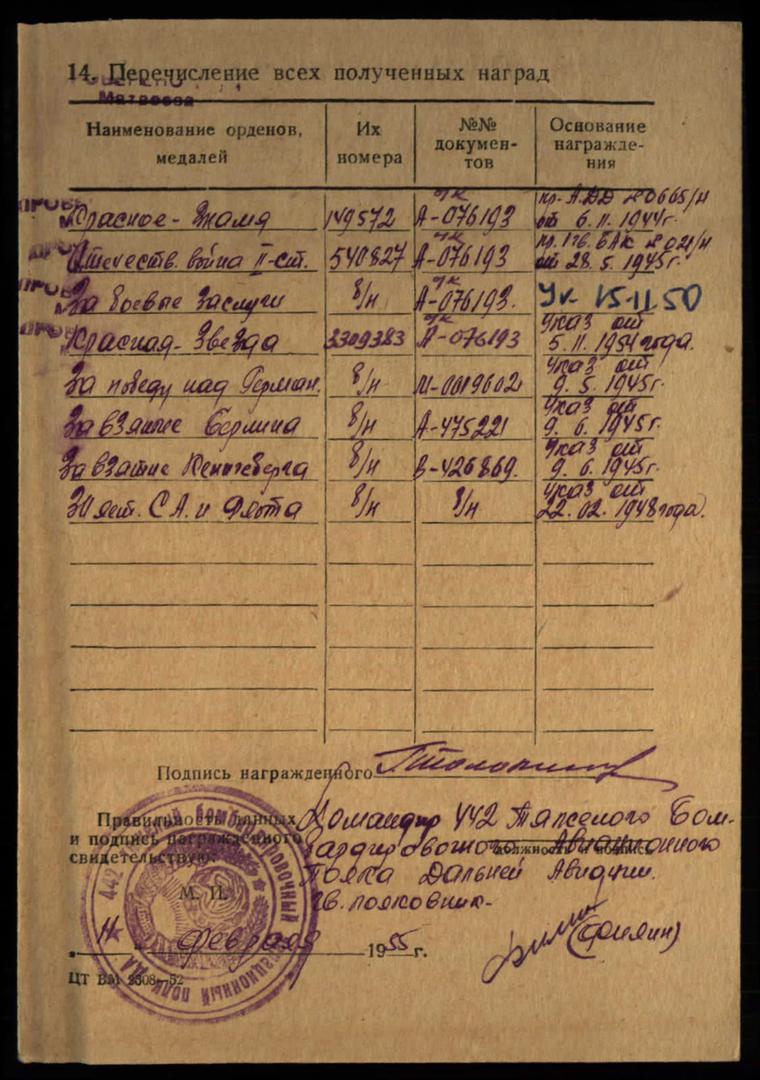 14. Перечисление всех полученных наград
Матвеева
Наименование орденов, медалей
Их номера
№№ докумен-тов
Основание награжде-ния
Красное-Знамя 149572 А-076193 пр. АДД №0665/н от 6.11.1944г.
Отечеств. война II-ст. 540827 А-076193 28.5.1945г.
За боевые заслуги б/н А-076193. Ук-15-11.50
Красная-Звезда 3309383 А-076193 Указ от 5.11.1954 года.
За победу над Герман. б/н М-0019602 Указ от 9.5.1945г.
За взятие Берлина б/н А-475221 Указ от 9.6.1945г.
За взятие Кенигсберга б/н В-426869. Указ от 9.6.1945г.
30 лет. С.А. и Флота б/н б/н Указ от 22.02.1948 года.
Подпись награжденного
Правильность данных
и подпись награжденного
свидетельствую:
Командир 442 Тяжелого Бом-
бардировочного Авиационного
должность и подпись
Полка Дальней Авиации.
Гв. полковник-
М. П.
(Филин)
11 февраля 1955 г.
ЦТ ВМ 2508—52